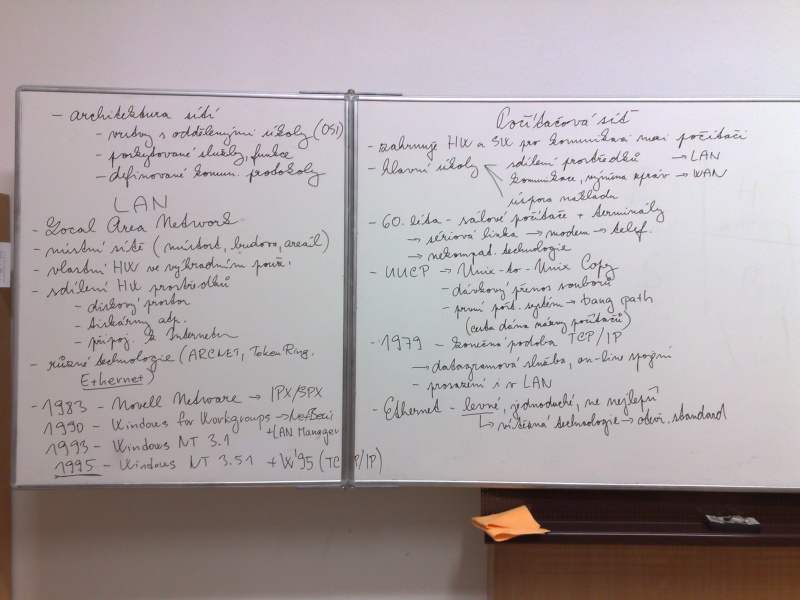 - architektura sítí
- vrstvy s oddělenými úkoly (OSI)
- poskytované služby, funkce
- definované komun. protokoly
LAN
- Local Area Network
- místní sítě (místnost, budova, areál)
- vlastní HW ve výhradním použ.
- sdílení HW prostředků
- diskový prostor
- tiskárny atp.
- připoj. k Internetu
- různé technologie (ARCNET, Token Ring,
Ethernet)
- 1983 - Novell Netware → IPX/SPX
1990 - Windows for Workgroups → NetBeui
+ LAN Manager
1993 - Windows NT 3.1
1995 - Windows NT 3.51 + W'95 (TCP/IP)
Počítačová síť
- zahrnuje HW a SW pro komunikaci mezi počítači
- hlavní úkoly sdílení prostředků → LAN
komunikace, výměna zpráv → WAN
úspora nákladů
- 60. léta - sálové počítače + terminály
→ sériová linka → modem → telef.
→ nekompat. technologie
- UUCP → Unix-to-Unix Copy
- dávkový přenos souborů
- první pošt. systém → bang path
(cesta dána názvy počítačů)
- 1979 - konečná podoba TCP/IP
→ datagramová služba, on-line spojení
- prosazení i v LAN
- Ethernet - levné, jednoduché, ne nejlepší
↳ vítězná technologie → otevř. standard